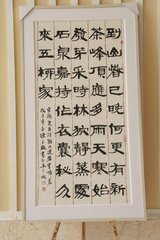 到山春已晚何更有新
茶峰頂應多雨天寒始
發芽采時林狖靜蒸處
石泉嘉持作衣囊秘分
來五柳家